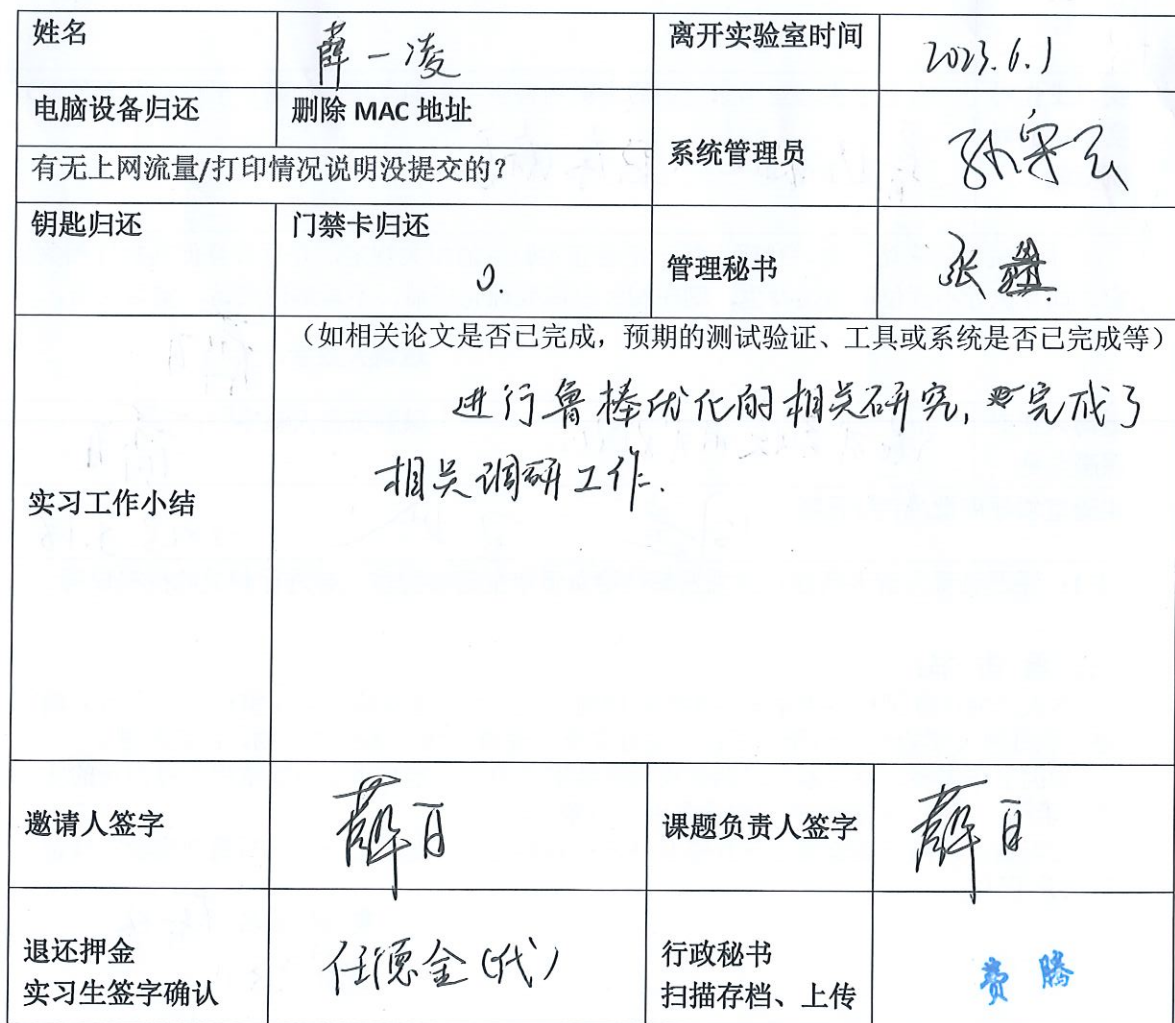 姓名
薛一凌
离开实验室时间
2023.6.1
电脑设备归还
删除 MAC 地址
有无上网流量/打印情况说明没提交的?
系统管理员
孙守云
钥匙归还
门禁卡归还
0.
管理秘书
张
实习工作小结
(如相关论文是否已完成,预期的测试验证、工具或系统是否已完成等)
进行鲁棒优化的相关研究, 完成了
相关调研工作.
邀请人签字
薛白
课题负责人签字
薛白
退还押金
实习生签字确认
任德金(代)
行政秘书
扫描存档、上传
费腾